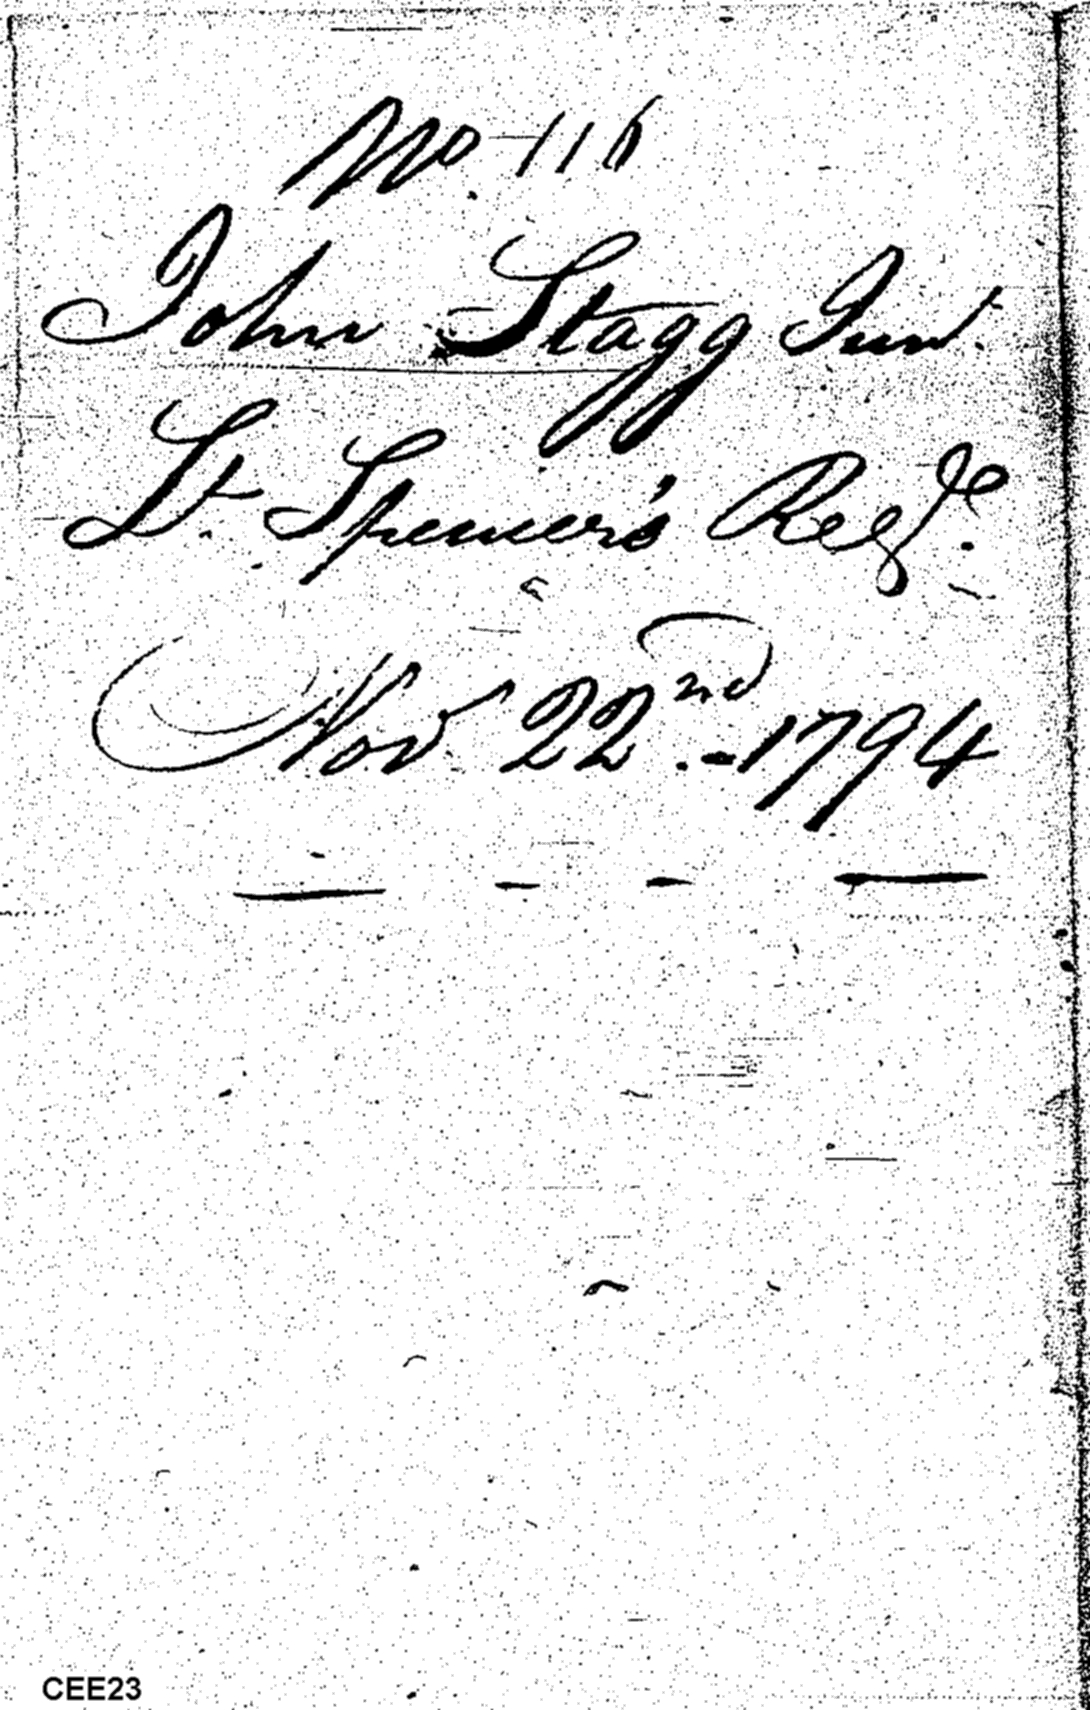 No. 116
John Stagg Junr.
Lt. Spencer's Regt.
Nov. 22nd. - 1794
CEE23